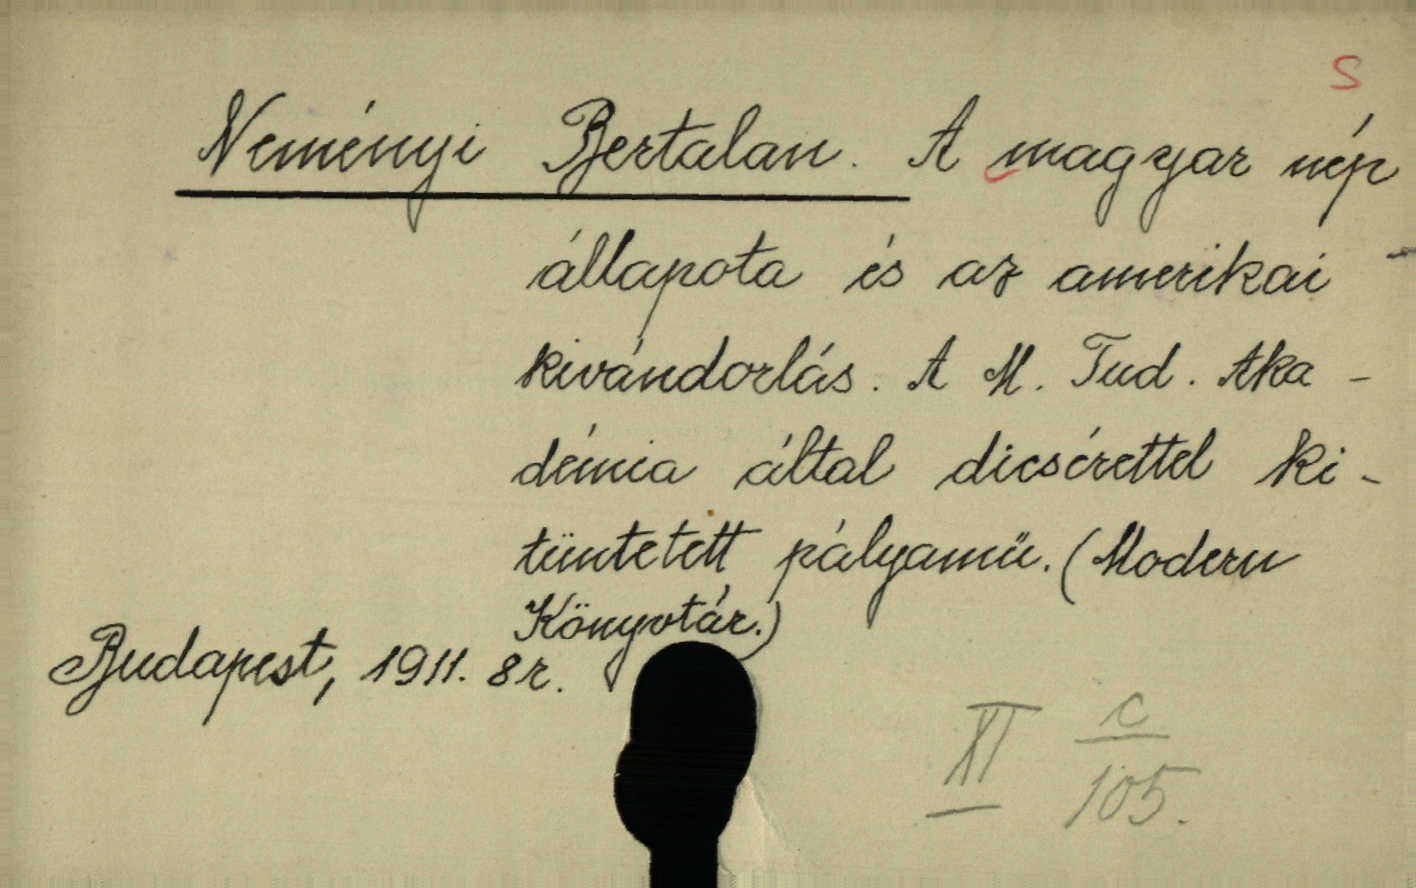 S
Neményi Bertalan. A magyar nép
állapota és az amerikai
kivándorlás. A M. Tud. Aka-
démia által dicsérettel ki-
tüntetett pályamű. (Modern
Könyvtár.)
Budapest, 1911. 8r.
XI c/105.